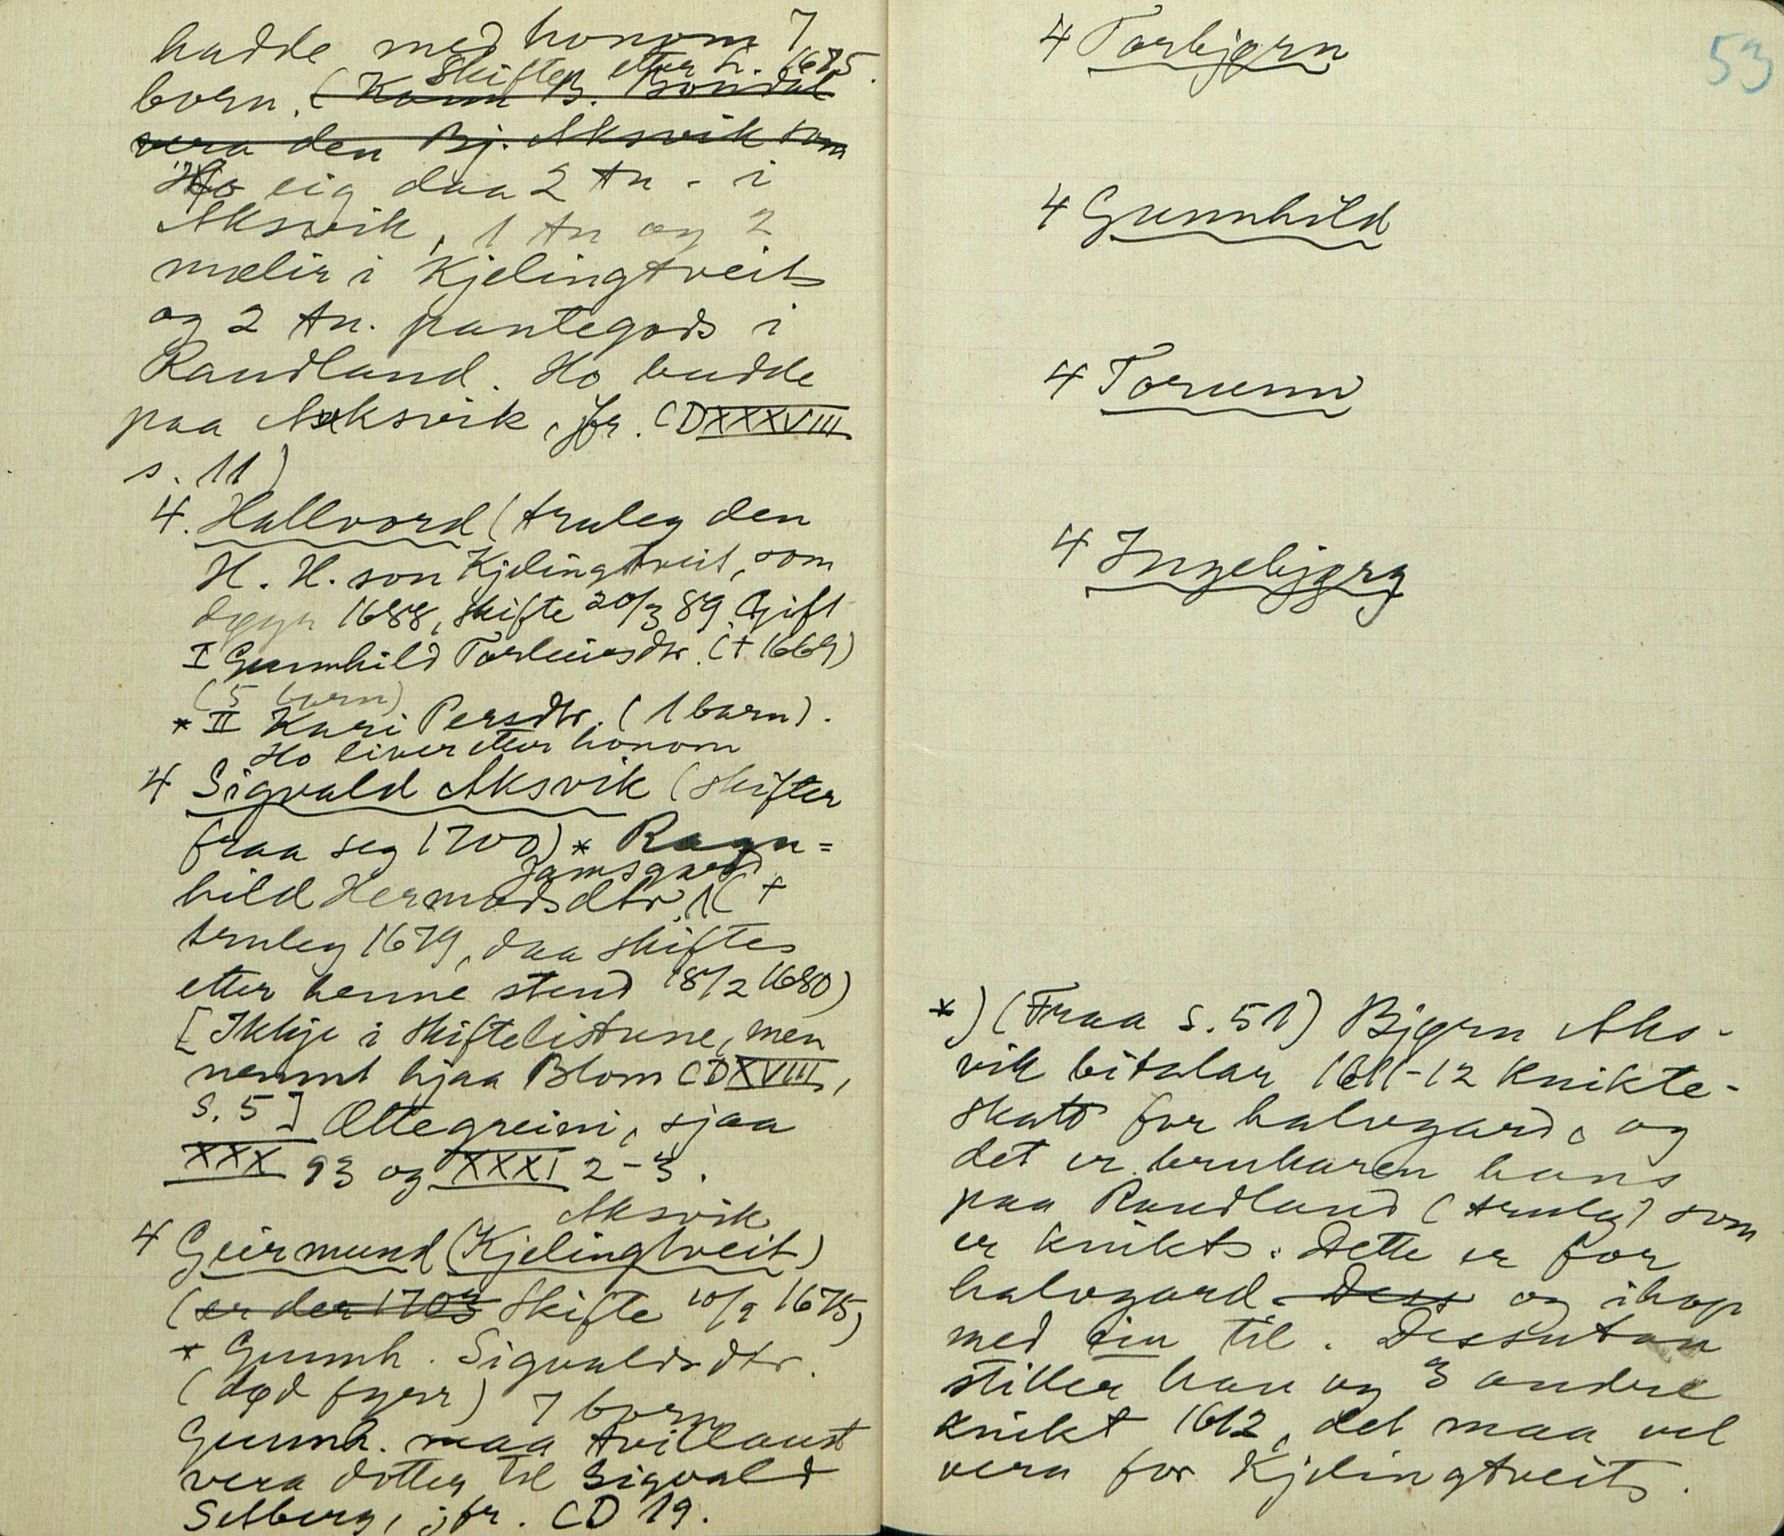 hadde med honom 7
born. Skifter etter h. 1685.
(Kann B. Bondal
vera den Bj. Aksvik som
Ho eig daa 2 tn. i
Aksvik, 1 tn og 2
mælir i Kjelingtveit
og 2 tn. pantegods i
Randland. Ho budde
paa Aksvik, jfr. CDXXXVIII
s. 11)
4. Hallvord (truleg den
H. H. son Kjelingtveit, som
døyr 1688, skifte 20/3 89. Gift
I Gunnhild Torleivsdtr. († 1669)
(5 born)
* II Kari Persdtr. (1 barn).
Ho liver etter honom
4 Sigvald Aksvik (skifter
fraa seg 1700) * Ragn=
hild Hermodsdtr. Jamsgard (†
truleg 1679, daa skiftes
etter henne stend 18/2 1680)
[Ikkje i skiftelistune, men
nemnt hjaa Blom CDXVIII,
s. 5] Ættegreini, sjaa
XXX 93 og XXXI 2-3.
Aksvik
4 Geirmund (Kjelingtveit)
(er der 1703 Skifte 10/9 1675)
* Gunnh. Sigvaldsdtr.
(død fyrr) 7 born
Gunnh. maa tvillaust
vera dotter til Sigvald
Selberg, jfr. CD 19.
53
4 Torbjørn
4 Gunnhild
4 Torunn
4 Ingebjørg
*) (Fraa s. 51) Bjørn Aks-
vik bitalar 1611-12 knikte-
skatt for halvgard, og
det er brukaren hans
paa Randland (truleg) som
er knikt. Dette er for
halvgard. Dess og ihop
med ein til. Dessutan
stiller han og 3 andre
knikt 1612, det maa vel
vera for Kjelingtveit.